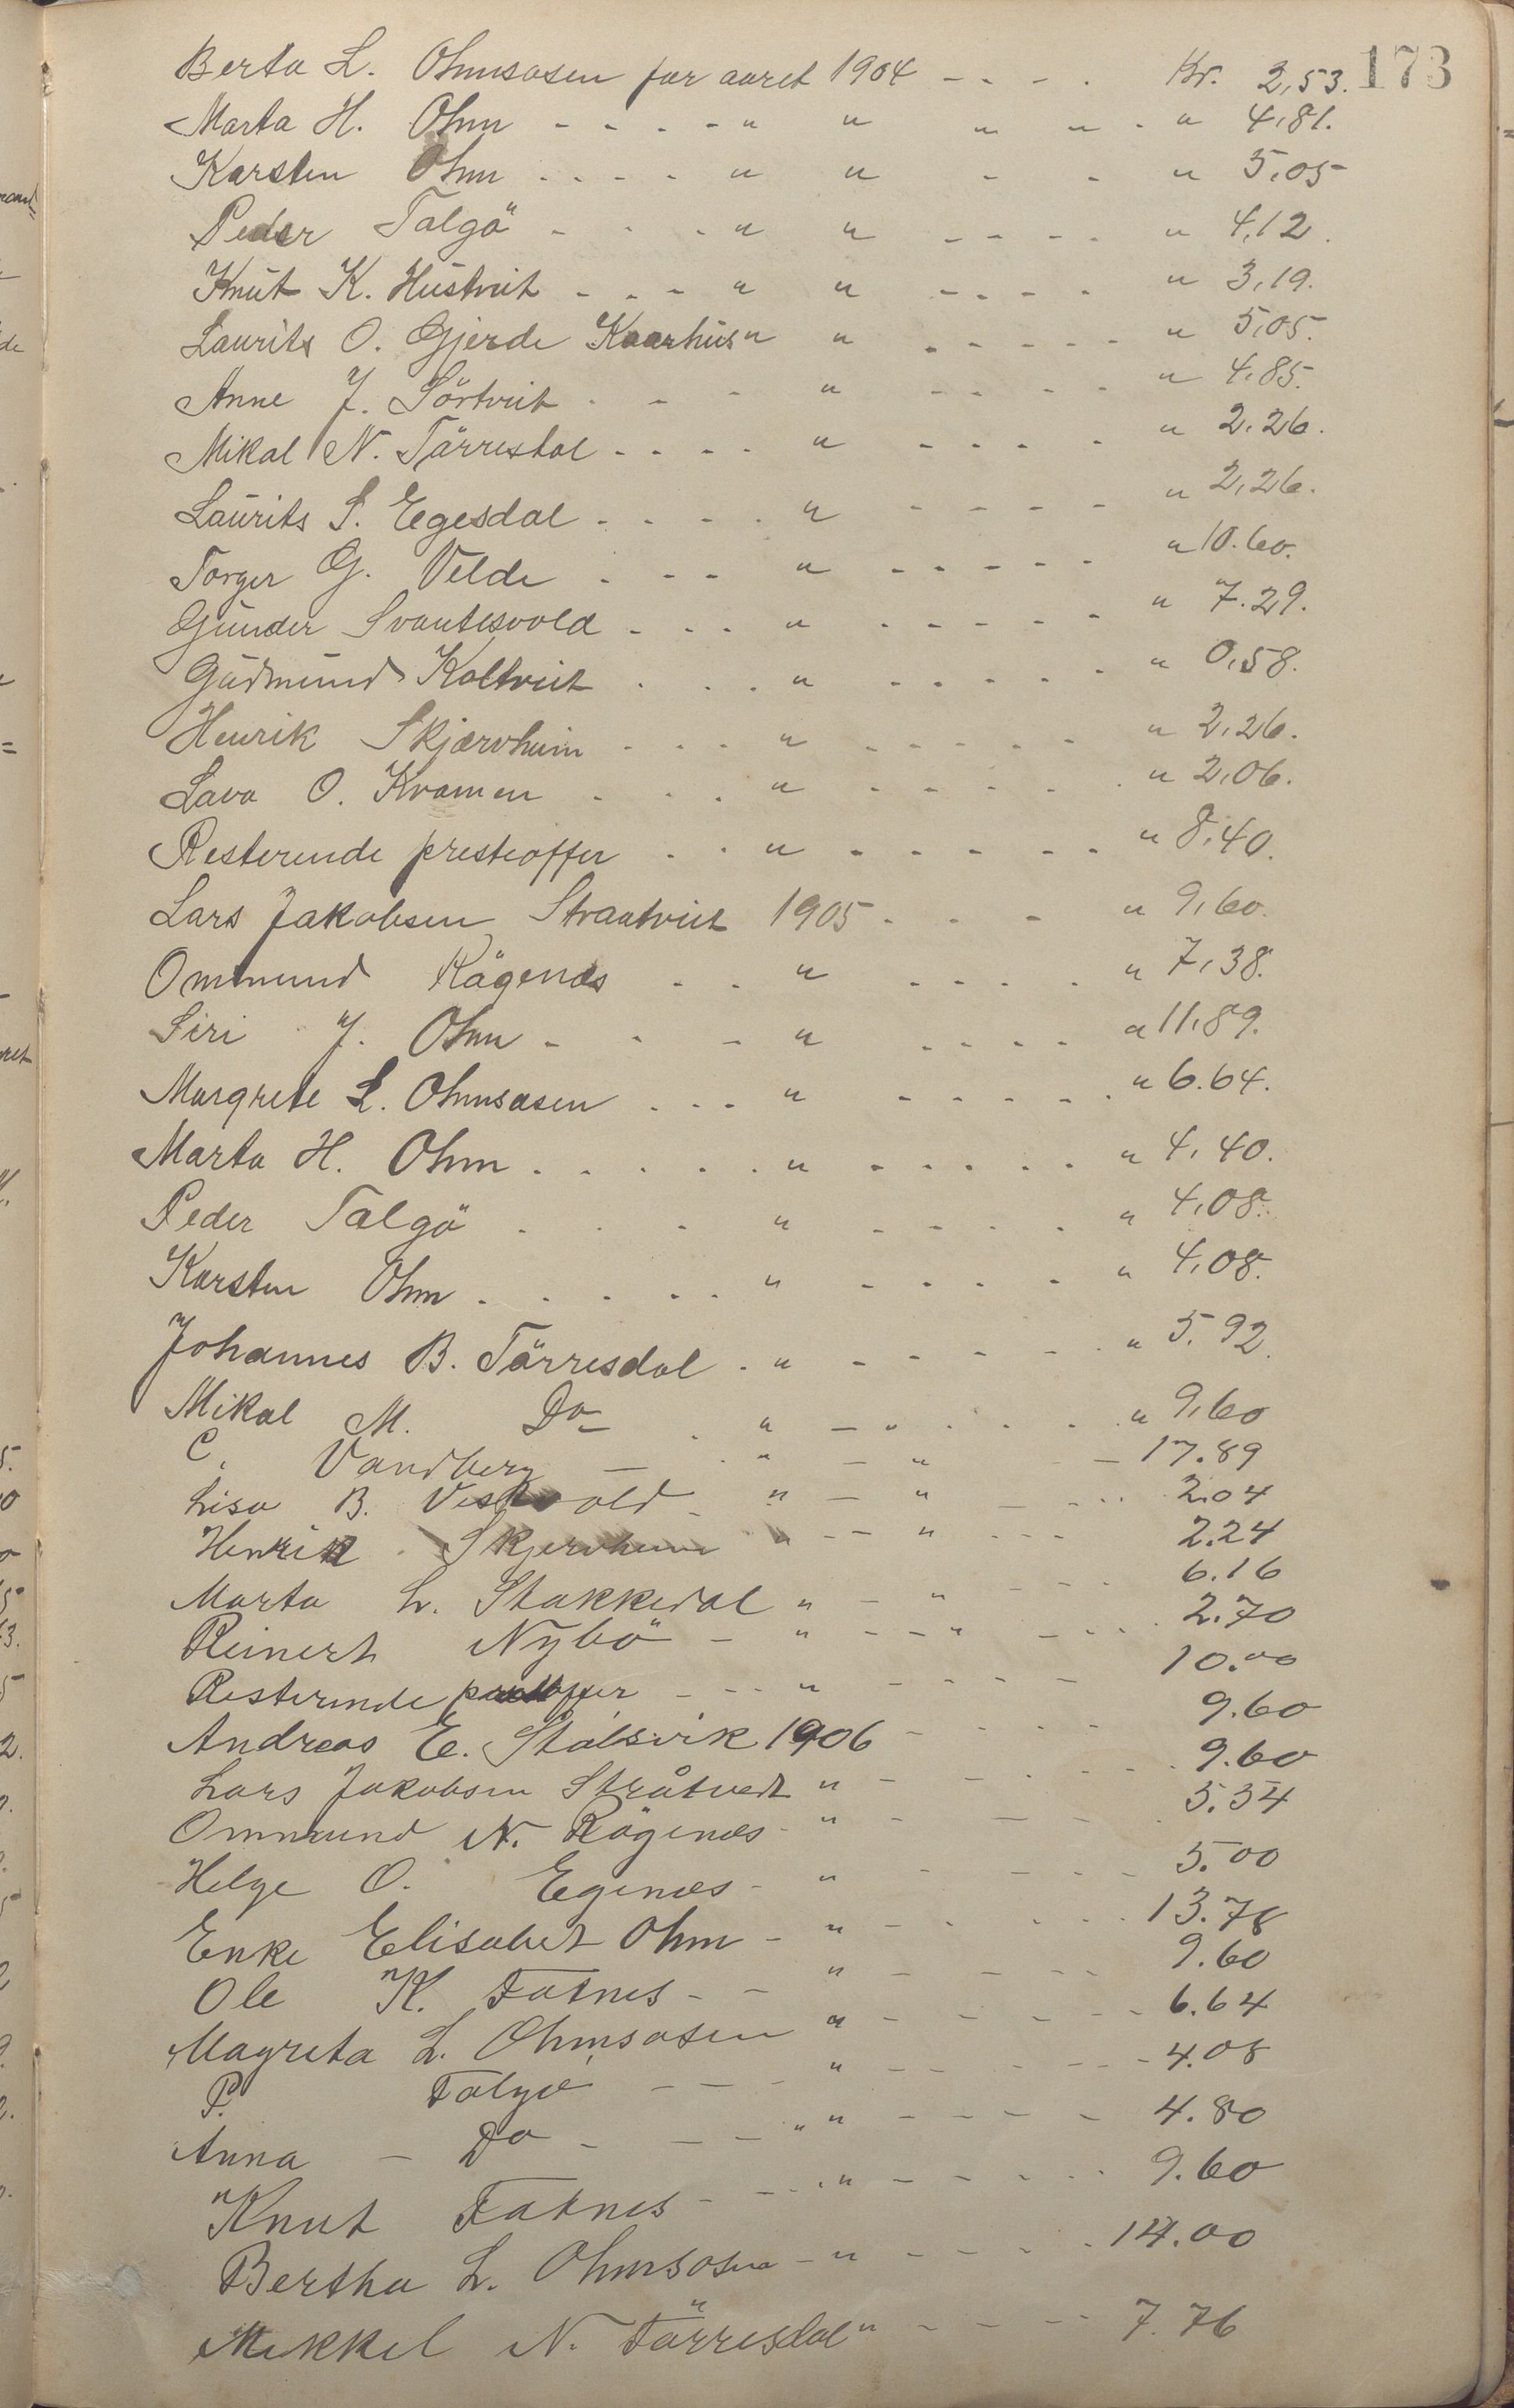 173
Berta L. Ohmsåsen for aaret 1904 - - - . Kr. 2,53.
Marta H. Ohm - - - - - " " " " . " 4,81.
Karsten Ohm . - - - " " - - " 5,05
Peder Talgö - - - " " - - - - " 4,12.
Knut K. Hustveit - - - " " - - - - " 3,19.
Laurits O. Gjerde Kaarhus " " - - - - - " 5,05.
Anne J. Sörtveit . - - " - - - - " 4,85.
Mikal N. Tärrestal - - - - " - - - - " 2,26.
Laurits S. Egesdal - - - . " - - - - " 2,26.
Torger G. Velde . - - " - - - - - " 10.60.
Gunder Svantesvold - - - " - - - - - " 7.29.
Gudmund Koltveit . . . " - - - - - " 0,58.
Henrik Skjærvheim - - - " - - - - - " 2,26.
Lava O. Kvamen - - - " - - - - . " 2,06.
Resterende presteoffer . . " - - - - - - " 8,40.
Lars Jakobsen Straatveit 1905 - - - " 9,60.
Ommund Rägenæs . . " . . . . " 7,38.
Siri J. Ohm - - - " - - - - " 11,89.
Margrete L. Ohmsåsen . . . " - - - - - . " 6.64.
Marta H. Ohm . . . . . " . . . . . " 4,40.
Peder Talgö . . . " - - - - . " 4,08.
Karsten Ohm . . . . . " - - - - " 4,08.
Johannes B. Tärresdal . " - - - - - . " 5.92.
Mikal M. Do . " - - . . . . " 9,60
C. Vandberg — . " — " - — 17.89
Lisa B. Vestvold - " — " — - . . . 2.04
Henrik Skjervheim " - - " - - - 2.24
Marta L. Stakkedal " - " - - . . 6.16
Reinert Nybö - " - - " - - . . . 2.70
Resterende prestoffer - - - " - - - - - 10.00
Andreas E. Stålsvik 1906 - - - - 9.60
Lars Jakobsen Stråtvedt " - - . - . . 9.60
Ommund N. Rägenæs - " - — - . 5.34
Helge O. Egenæs - " - - - - 5.00
Enke Elisabet Ohm - " - . - . . . 13.78
Ole K. Fatnes - - " - - - - 9.60
Magreta L. Ohmsåsen " - - - - - 6.64
P. Talgö - - - " - - - - - - 4.08
Anna - Do - - - " " - - - - 4.80
Knut Fatnes - - . . " - - - - . . 9.60
Bertha L. Ohmsåsen - " - - - - . 14.00
Mikkel N. Tärresdal " - - - - 7.76